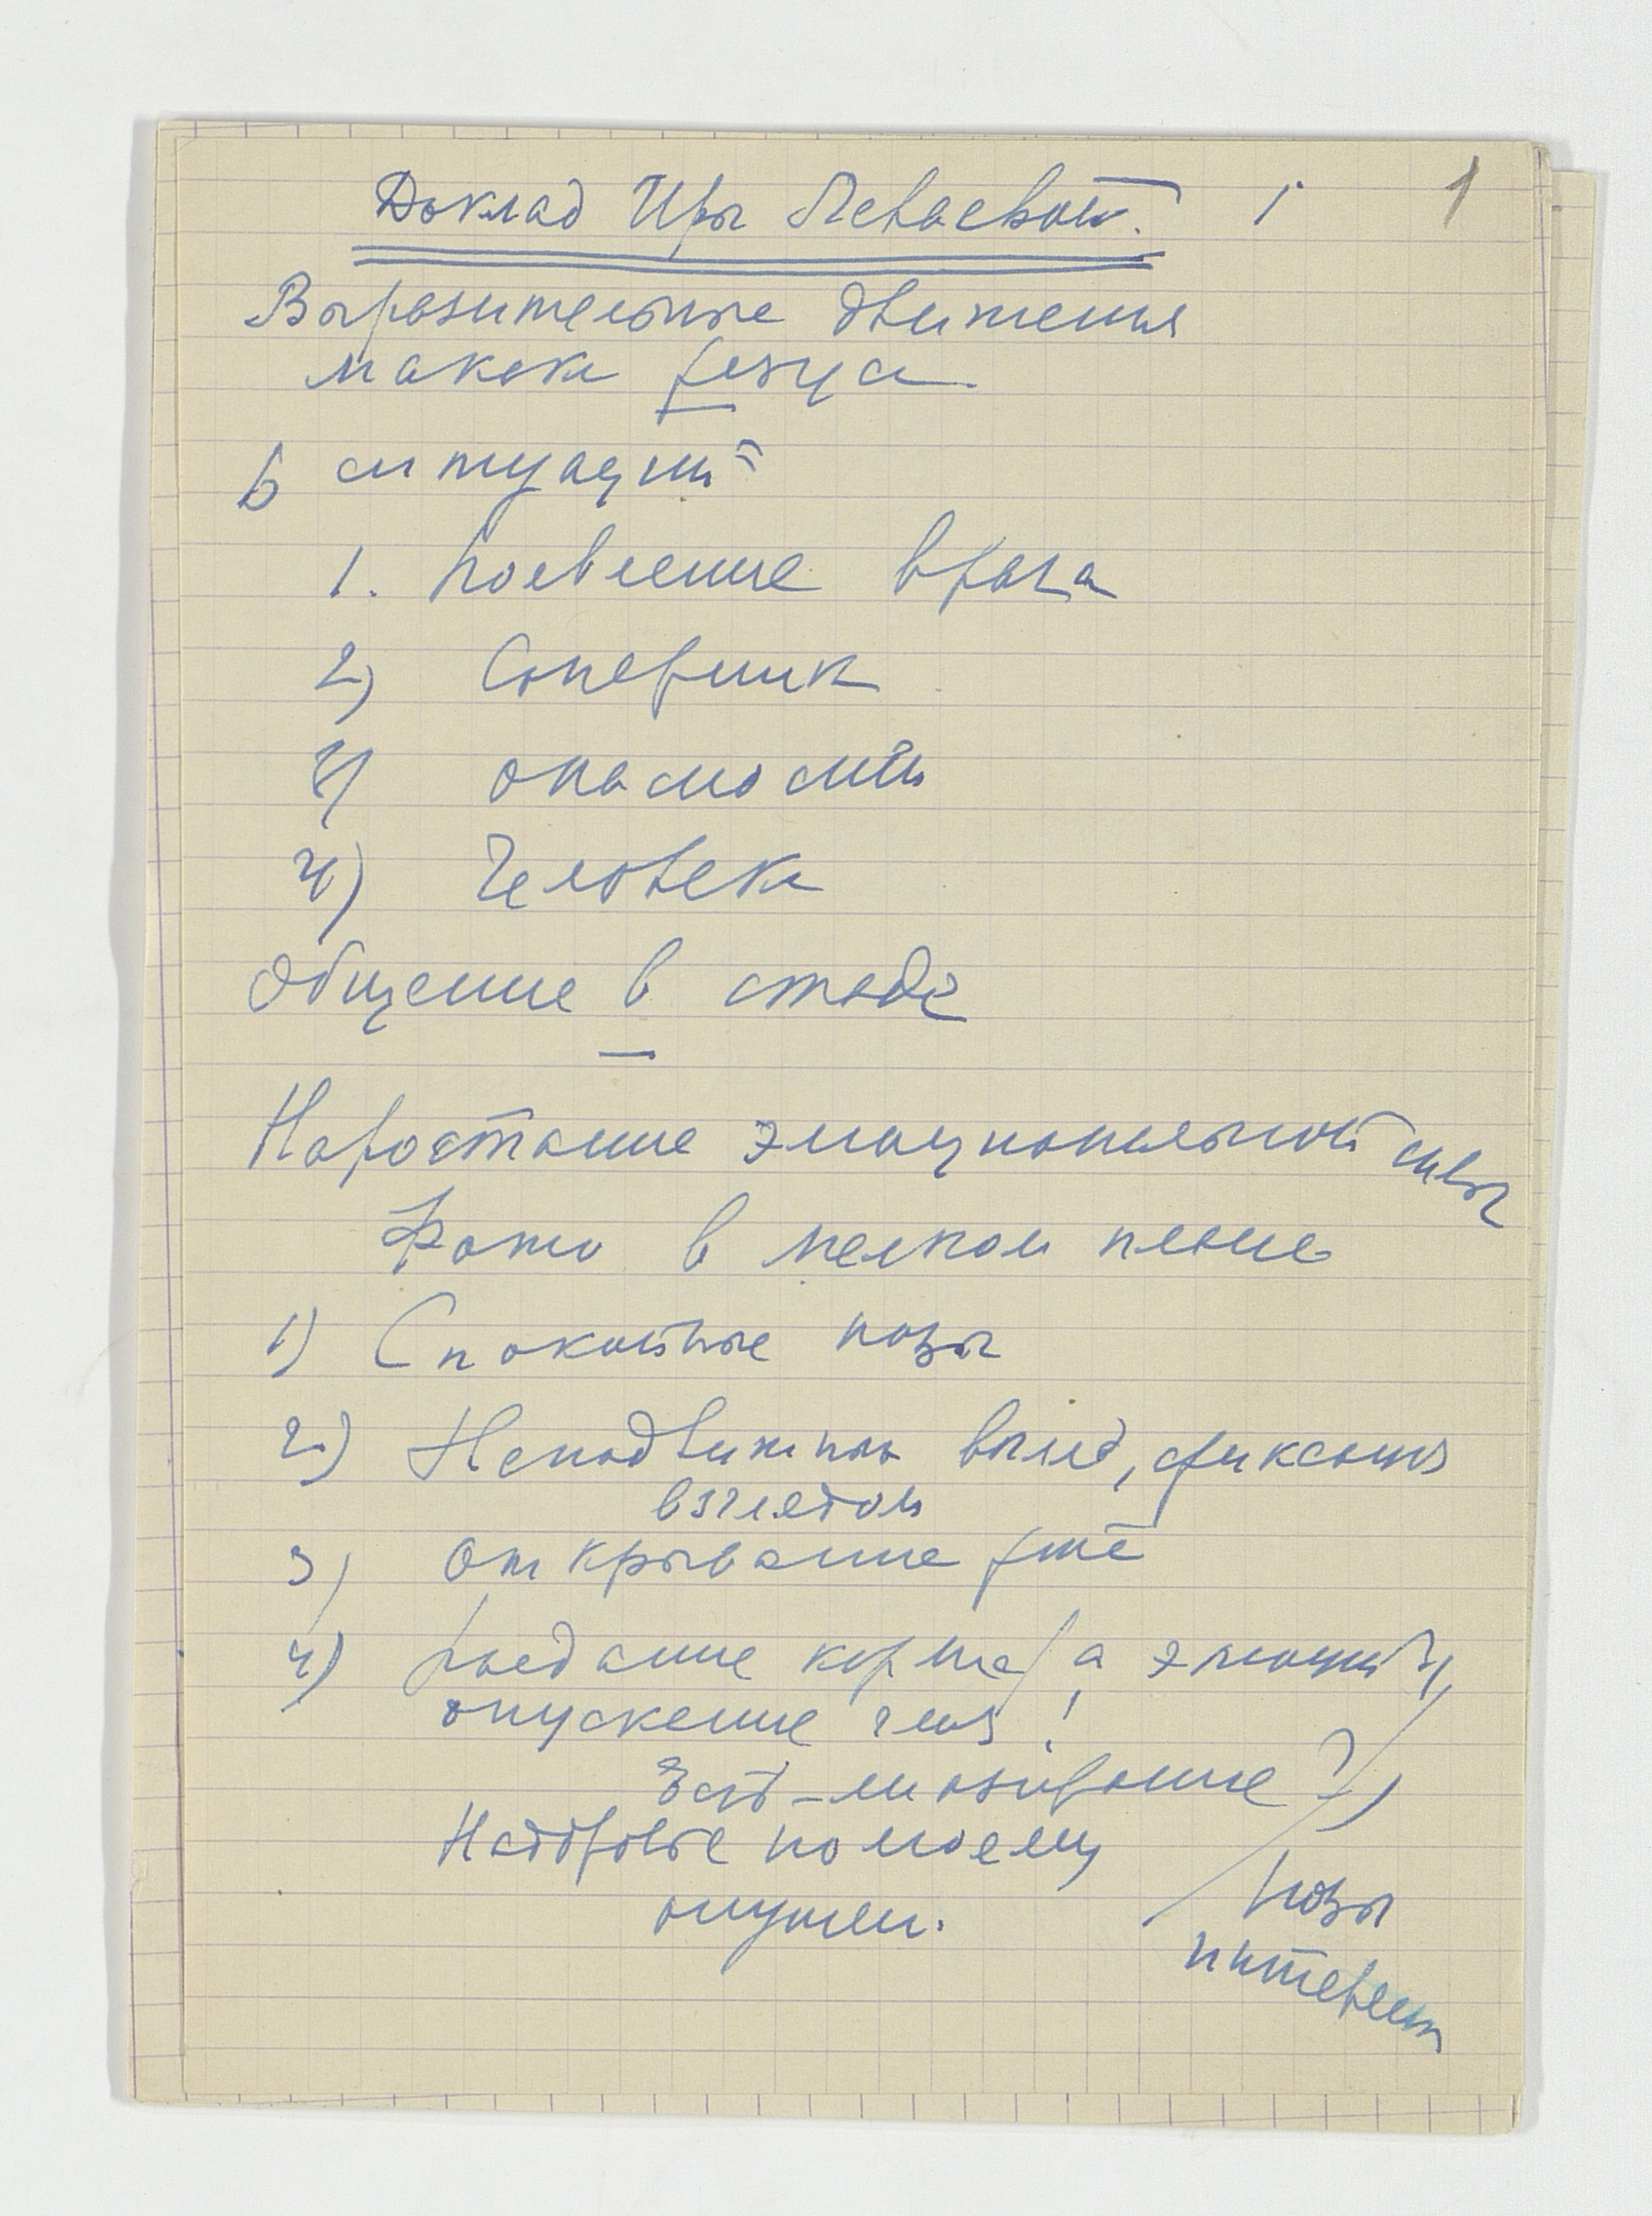 Доклад Иры Левкаевой. 1 1
Выразительные движения
макака резуса
6 ситуаций
1. Появление врага
2) Соперник
3) опасность
4) Человека
Общение в стаде
Нарастание эмоциональной силы
Фото в мелком плане
1) Спокойные позы
2) Неподвижны , фиксация
взглядом
3) Открывание рта
4) поедание корма / а эмоций?
опускание !
?)
по моему
опущен.
Позы
интерес